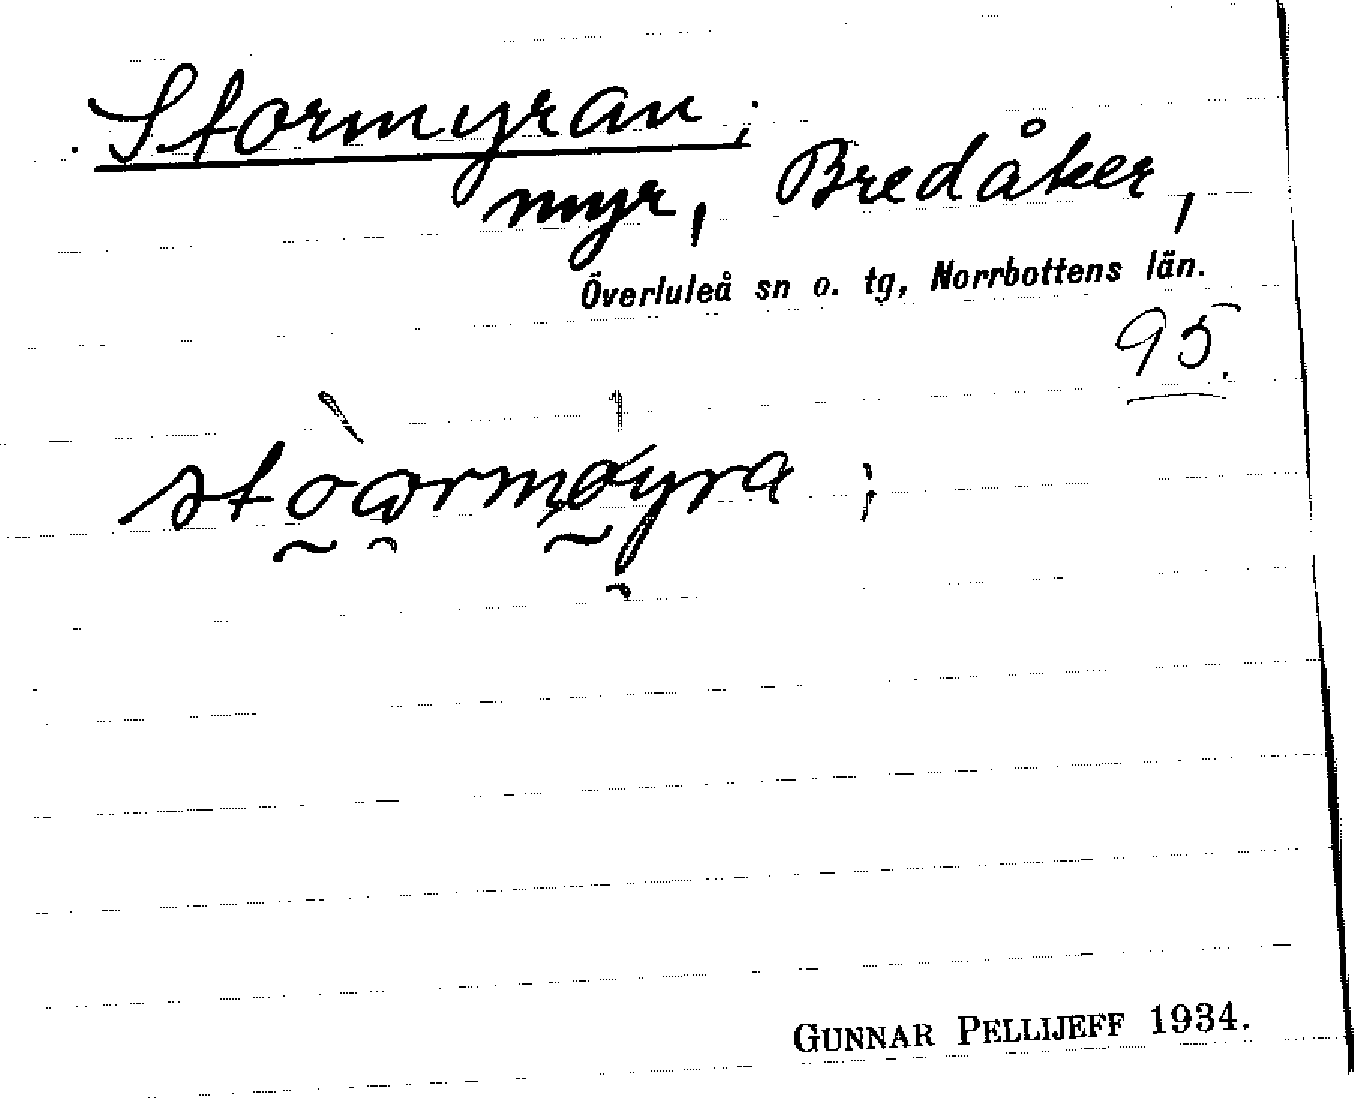 Stormyran;
myr, Bredåker,
Överluleå sn o. tg, Norrbottens län.
95.
stòormøyra;
GUNNAR PELLIJEFF 1934.